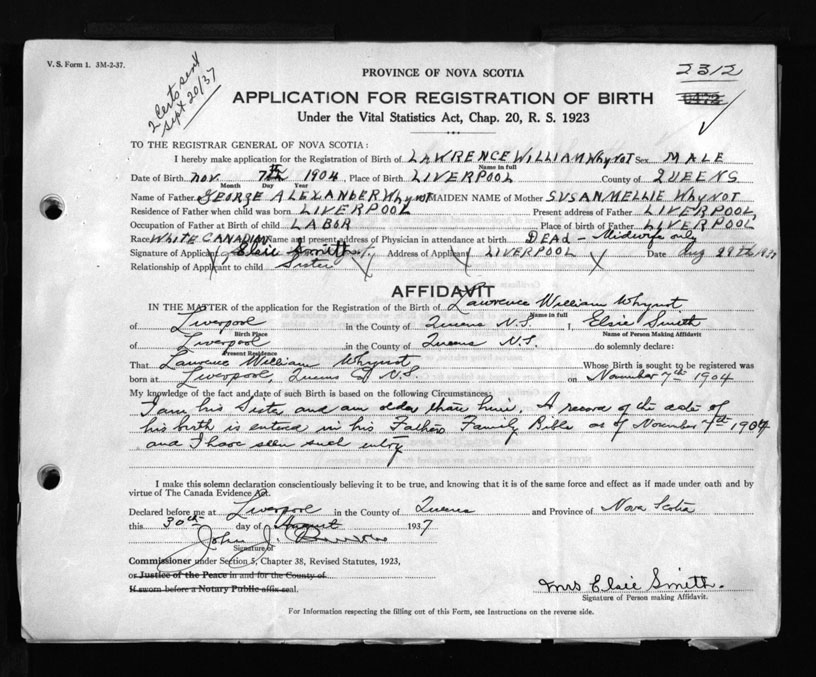 V. S. Form 1. 3M-2-37.
2 Certs sent
Sept 20/37
2312
PROVINCE OF NOVA SCOTIA
APPLICATION FOR REGISTRATION OF BIRTH
Under the Vital Statistics Act, Chap. 20, R. S. 1923
TO THE REGISTRAR GENERAL OF NOVA SCOTIA:
I hereby make application for the Registration of Birth of LAWRENCE WILLIAM Whynot Sex MALE
Name in full
Date of Birth Nov. 7th 1904, Place of Birth LIVERPOOL County of QUEENS
Month Day Year
Name of Father GEORGE ALEXANDER Whynot MAIDEN NAME of Mother SUSAN MELLIE WHYNOT
Residence of Father when child was born LIVERPOOL Present address of Father LIVERPOOL,
Occupation of Father at Birth of child LABOR Place of birth of Father LIVERPOOL
Race WHITE CANADIAN Name and present address of Physician in attendance at birth DEAD - Midwife only
Signature of Applicant Elsie Smith Address of Applicant LIVERPOOL Date Aug 29th 1937
Relationship of Applicant to child Sister
AFFIDAVIT
IN THE MATTER of the application for the Registration of the Birth of Lawrence William Whynot.
Name in full
of Liverpool in the County of Queens N.S. I, Elsie Smith
Birth Place Name of Person Making Affidavit
of Liverpool in the County of Queens N.S. do solemnly declare:
Present Residence
That Lawrence William Whynot Whose Birth is sought to be registered was
born at Liverpool, Queens Co N.S. on November 7th 1904
My knowledge of the fact and date of such Birth is based on the following Circumstances:
I am his Sister and am older than him. A record of the date of
his birth is entered in his Fathers Family Bible as of November 7th 1904
and I have seen such entry
I make this solemn declaration conscientiously believing it to be true, and knowing that it is of the same force and effect as if made under oath and by
virtue of The Canada Evidence Act.
Declared before me at Liverpool in the County of Queens and Province of Nova Scotia
this 30th day of August 1937
John J.
Signature of
Commissioner under Section 5, Chapter 38, Revised Statutes, 1923,
or Justice of the Peace in and for the County of
If sworn before a Notary Public affix seal.
Mrs Elsie Smith.
Signature of Person making Affidavit.
For Information respecting the filling out of this Form, see Instructions on the reverse side.